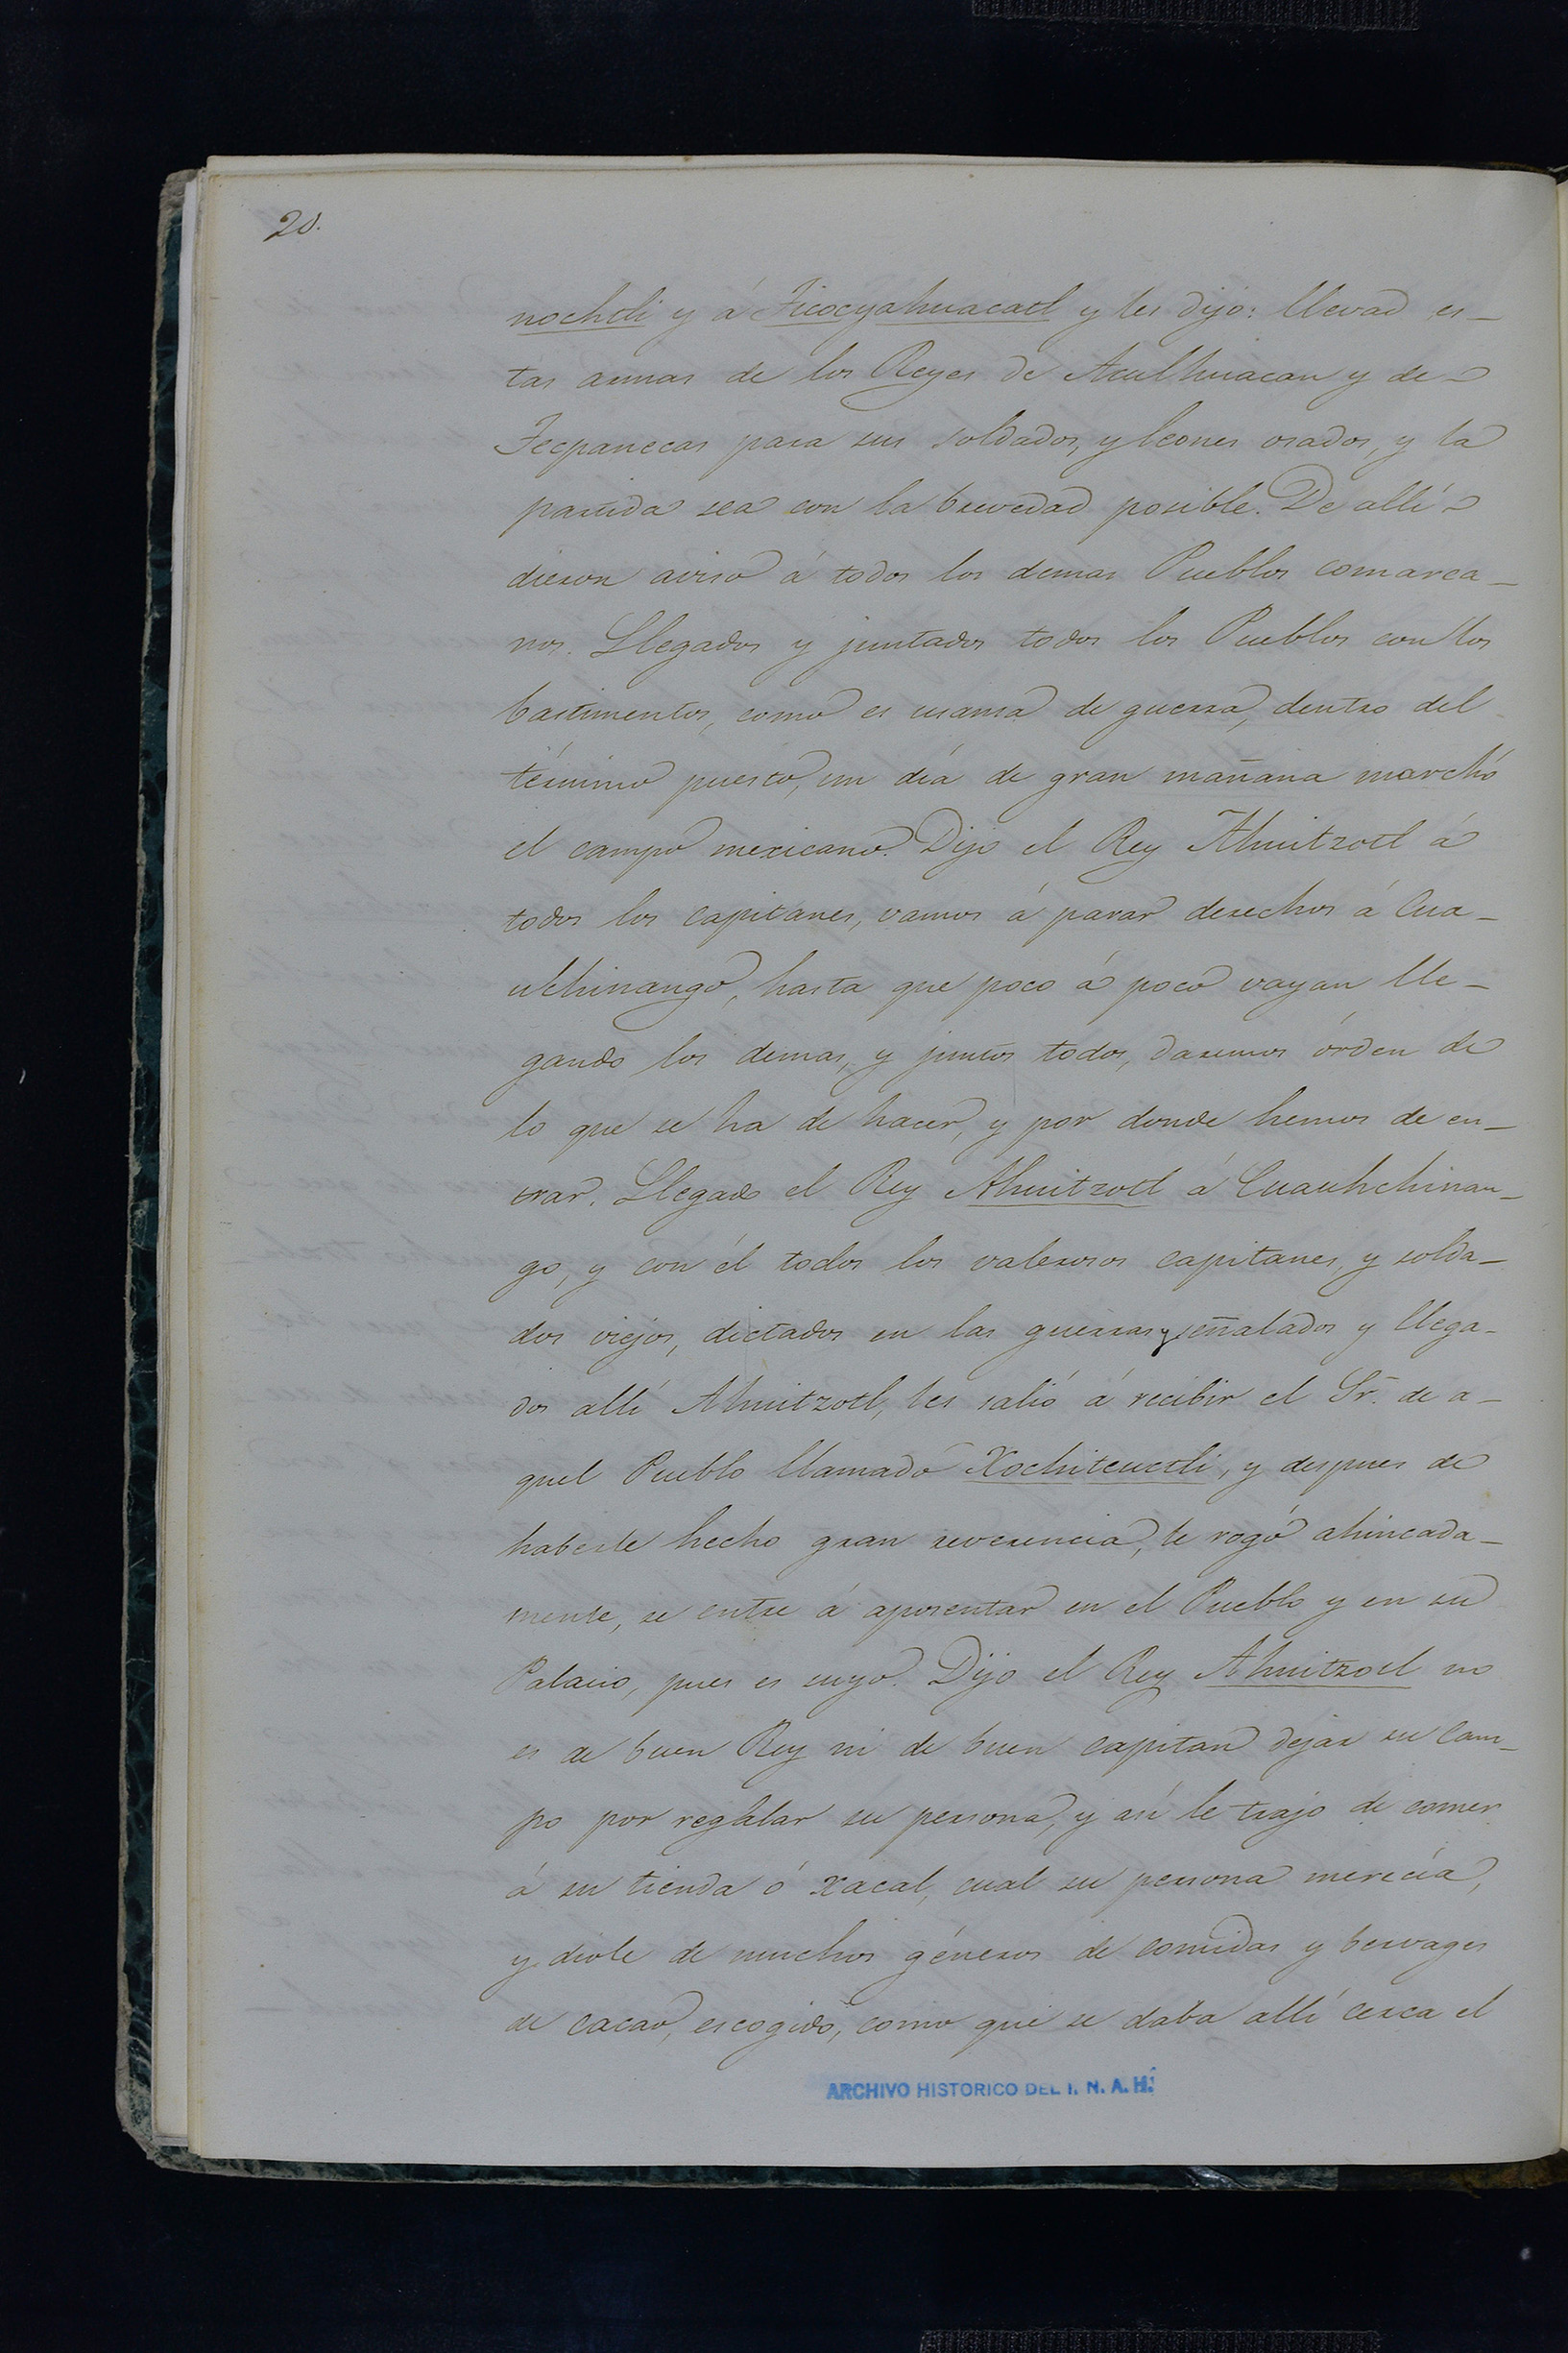 20.
nochtli y á Ticocyahuacatl y les dijo: llevad es-
tas armas de los Reyes de Aculhuacan y de
Tecpanecas para sus soldados, y leones osados, y la
partida sea con la brevedad posible. De allí
dieron aviso á todos los demas Pueblos comarca-
nos. Llegados y juntados todos los Pueblos con los
bastimentos, como es usansa de guerra, dentro del
término puesto, un día de gran mañana marchó
el campo mexicano. Dijo el Rey Ahuitzotl á
todos los capitanes, vamos á parar derechos á Cua-
uhchinango, hasta que poco á poco vayan lle-
gando los demas, y juntos todos, daremos órden de
lo que se ha de hacer, y por donde hemos de en-
trar. Llegado el Rey Ahuitzotl á Cuauhchinan-
go, y con él todos los valerosos capitanes, y solda-
dos viejos, dictados en las guerras y señalados y llega-
dos allí Ahuitzotl, les salió á recibir el Sr. de a-
quel Pueblo llamado Xochiteuctli, y despues de
haberle hecho gran reverencia, le rogó ahincada-
mente, se entre á aposentar en el Pueblo y en su
Palacio, pues es suyo. Dijo el Rey Ahuitzotl no
es de buen Rey ni de buen capitan dejar su cam-
po por regalar su persona, y asi le trajo de comer
á su tienda ó xacal, cual su persona merecía,
y diole de muchos géneros de comidas y bervages
de cacao, escogido, como que se daba allí cerca el
ARCHIVO HISTORICO DEL I. N. A. H.